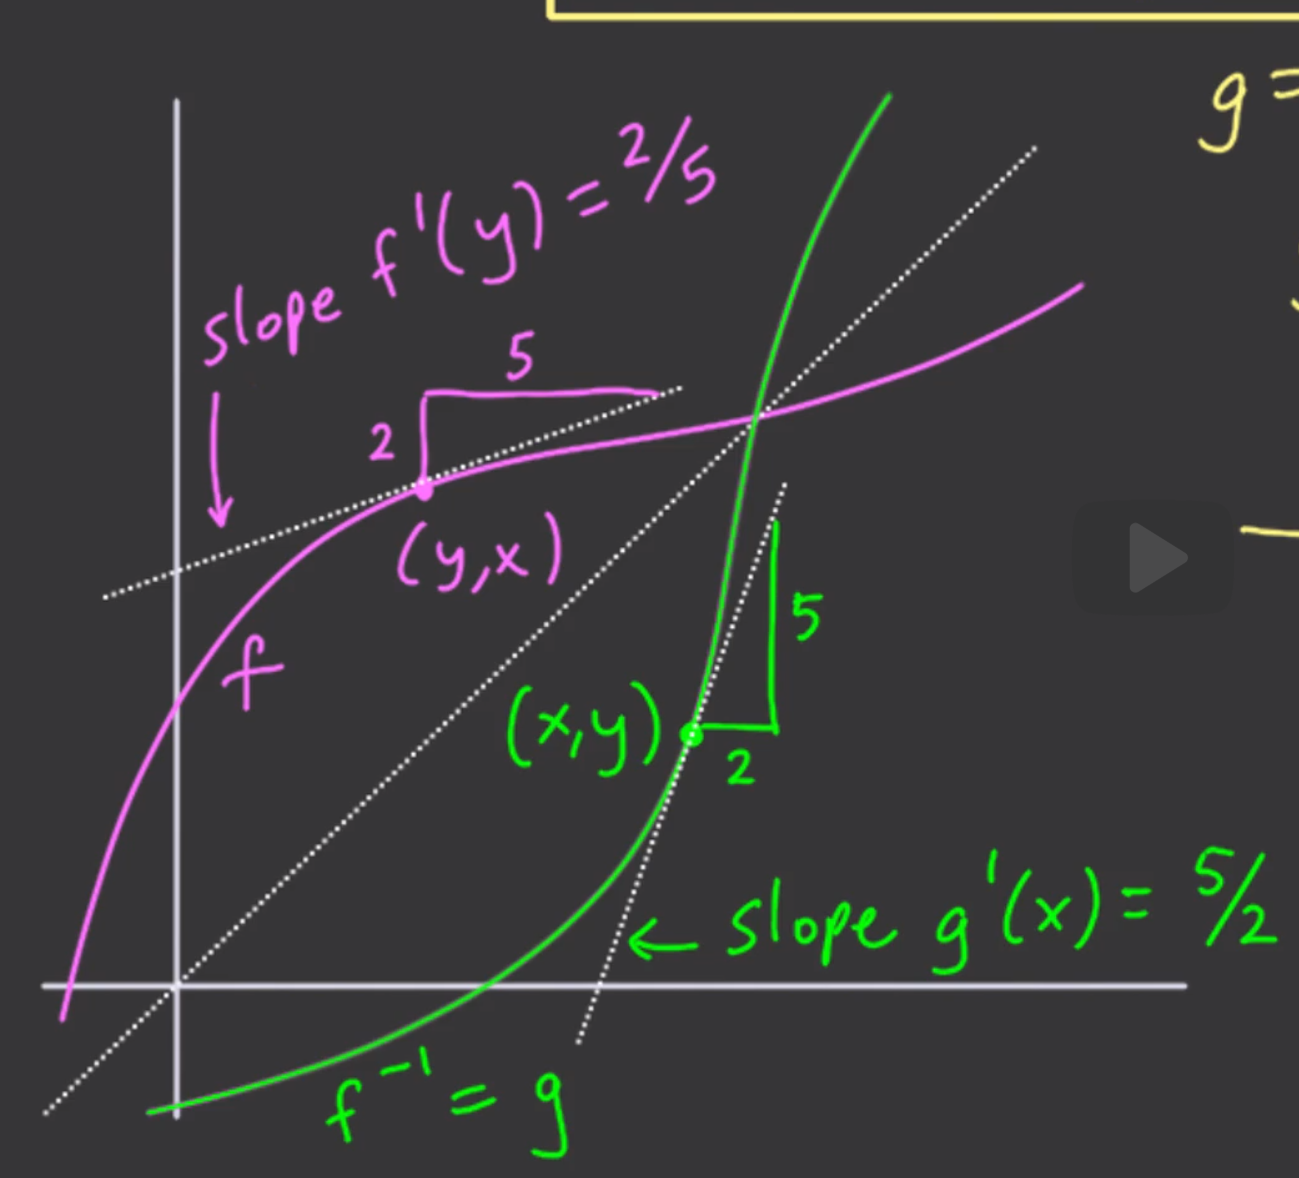 g =
slope f'(y) = 2/5
5
2
(y,x)
f
5
(x,y)
2
← slope g'(x) = 5/2
f⁻¹ = g